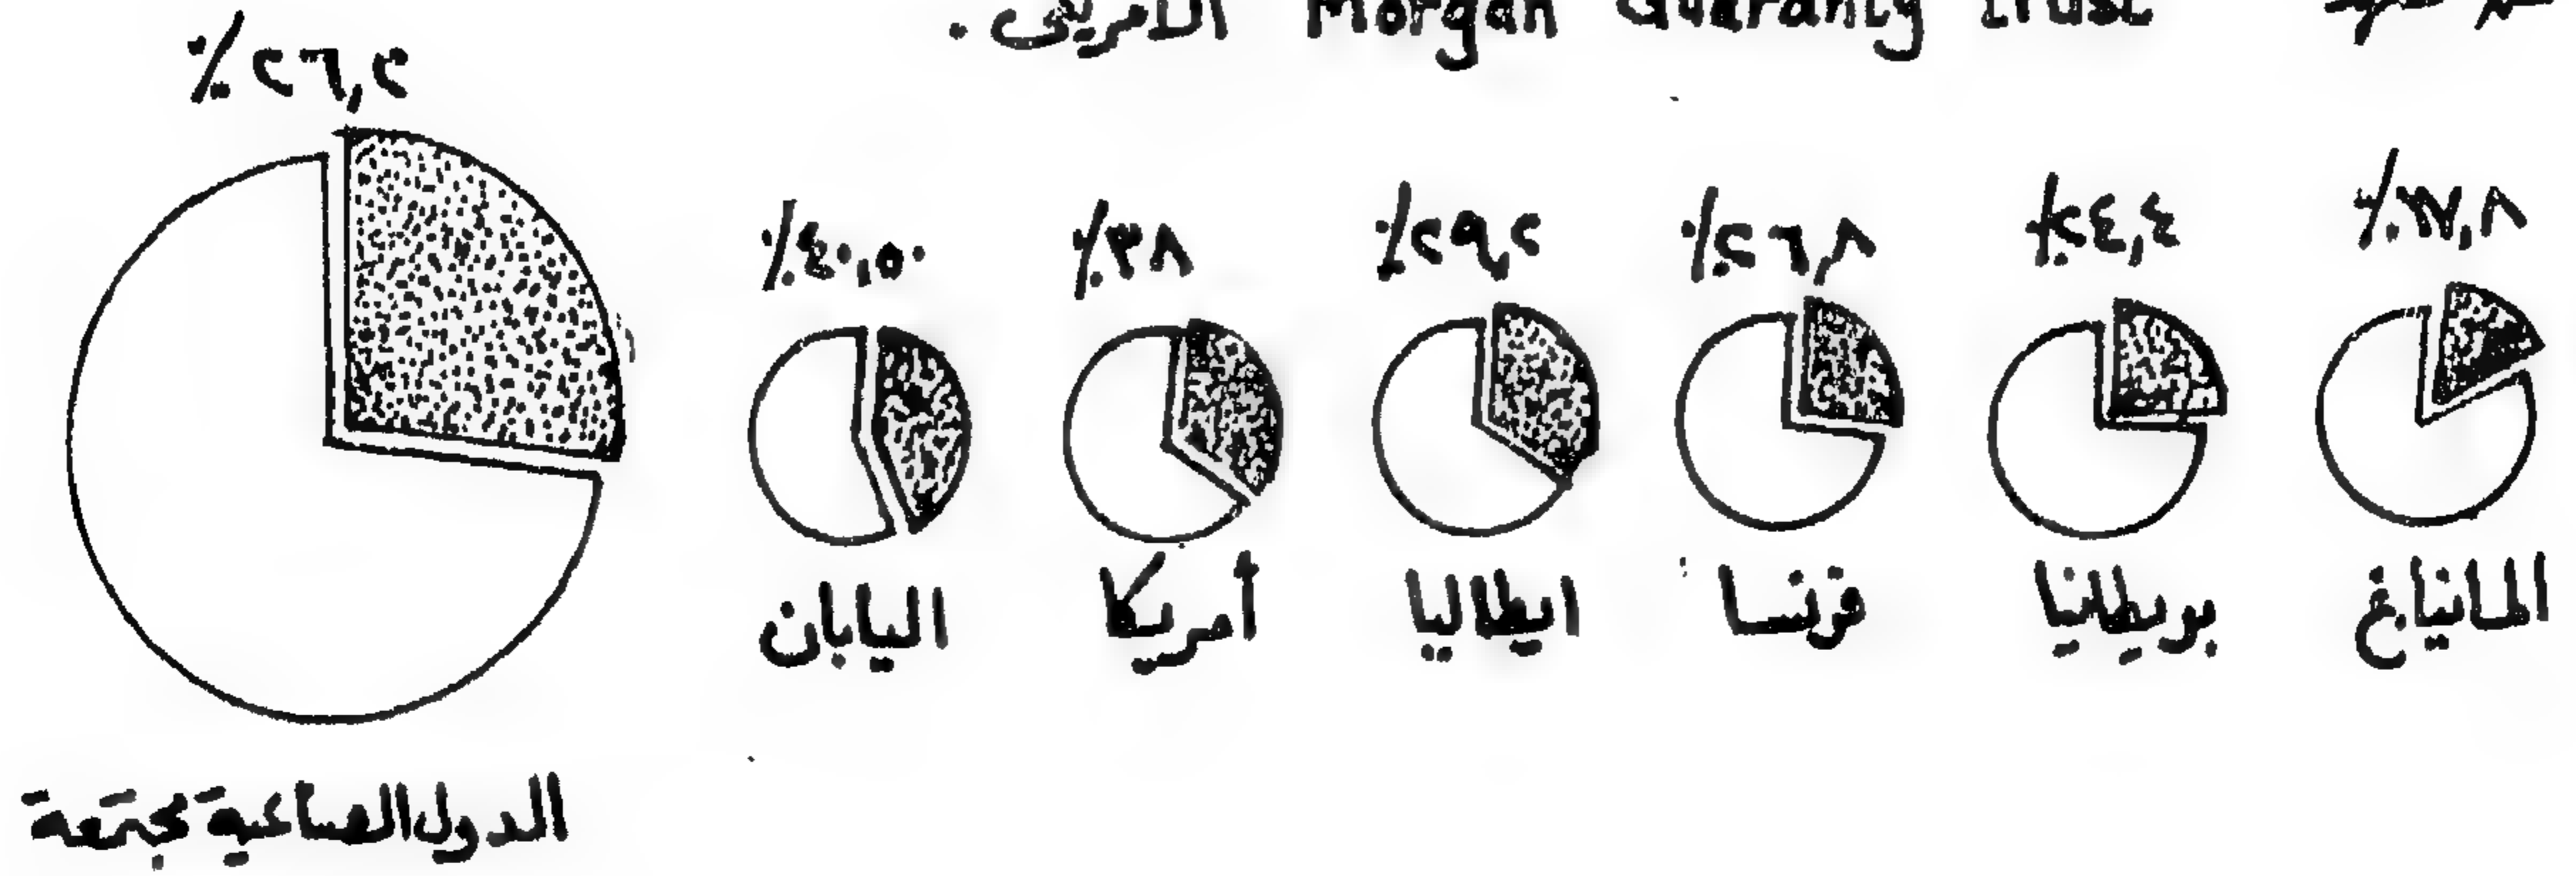 Morgan Guaranty trust الأمريكى .
٪٢٦,٢
٪١٧,٨ ٪٢٤,٤ ٪٢٦,٨ ٪٢٩,٢ ٪٣٨ ٪٤٠,٥٠
المانياغ بريطانيا فرنسا ايطاليا أمريكا اليابان
الدول الصناعية مجتمعة